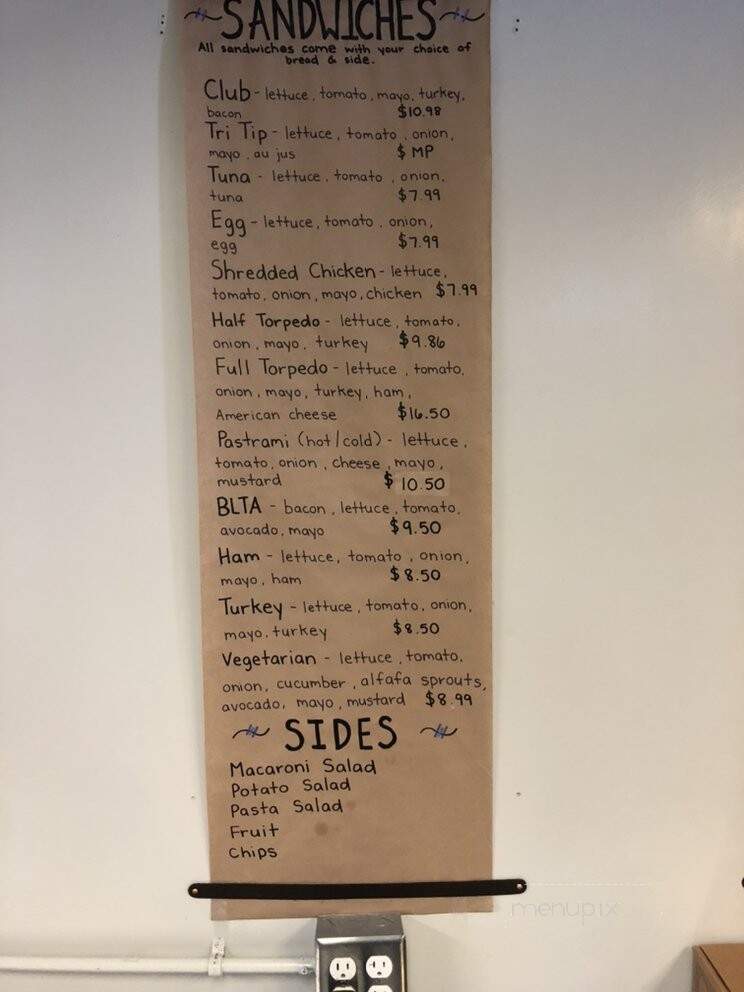 SANDWICHES
All sandwiches come with your choice of
bread & side.
Club - lettuce, tomato, mayo, turkey,
bacon $10.98
Tri Tip - lettuce, tomato, onion,
mayo, au jus $ MP
Tuna - lettuce, tomato, onion,
tuna $7.99
Egg - lettuce, tomato, onion,
egg $7.99
Shredded Chicken - lettuce,
tomato, onion, mayo, chicken $7.99
Half Torpedo - lettuce, tomato,
onion, mayo, turkey $9.86
Full Torpedo - lettuce, tomato,
onion, mayo, turkey, ham,
American cheese $16.50
Pastrami (hot/cold) - lettuce,
tomato, onion, cheese, mayo,
mustard $10.50
BLTA - bacon, lettuce, tomato,
avocado, mayo $9.50
Ham - lettuce, tomato, onion,
mayo, ham $8.50
Turkey - lettuce, tomato, onion,
mayo, turkey $8.50
Vegetarian - lettuce, tomato,
onion, cucumber, alfafa sprouts,
avocado, mayo, mustard $8.99
SIDES
Macaroni Salad
Potato Salad
Pasta Salad
Fruit
Chips
menupix